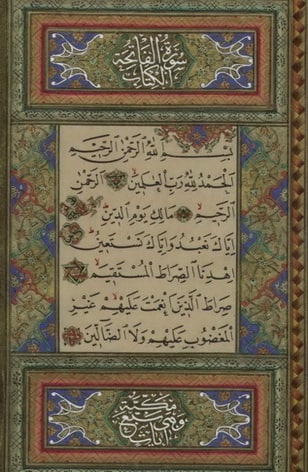 سورة الفاتحة
الكتاب
بسم الله الرحمن الرحيم
الحمد لله رب العلمين الرحمن
الرحيم مالك يوم الدين
اياك نعبد واياك نستعين
اهدنا الصراط المستقيم
صراط الذين انعمت عليهم غير
المغضوب عليهم ولا الضالين
مكية
وهي سبع
آيات